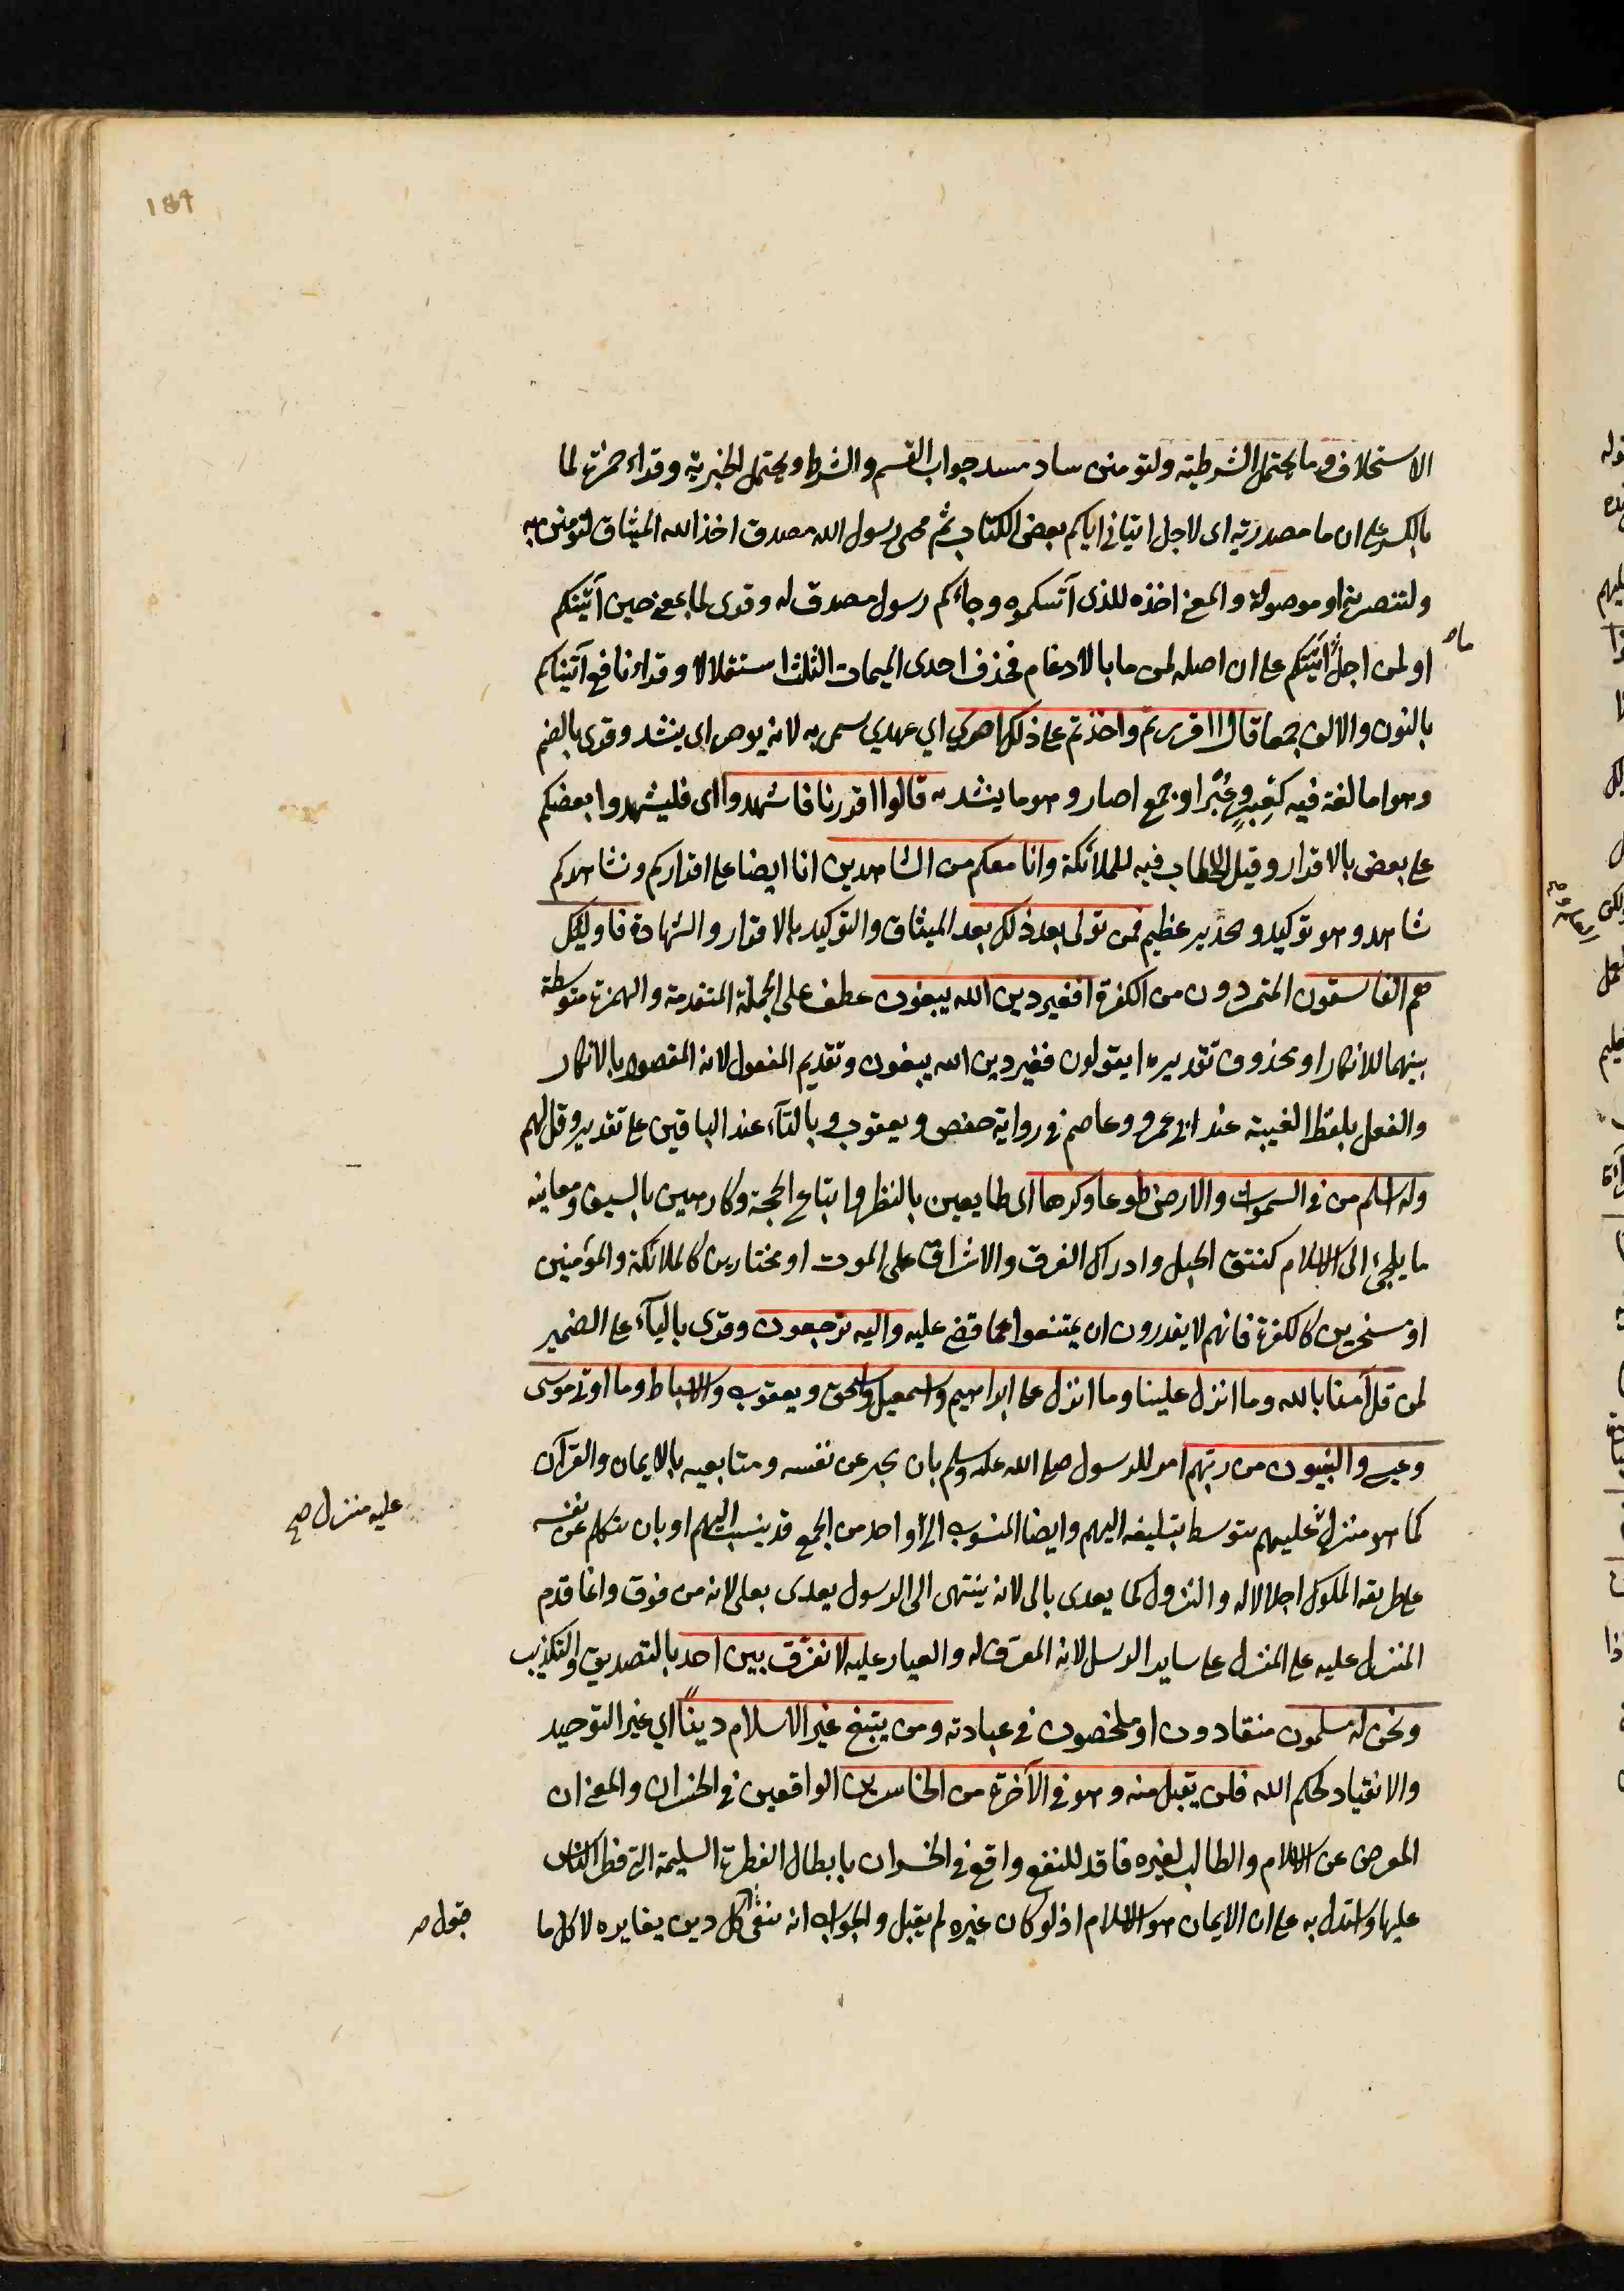 189
الاستحلاف وما يحتمل الشرطية ولتومنن ساد مسد جواب القسم والشرط ويحتمل الخبرية وقراء حمزة لما
بالكسر على ان ما مصدرية اى لاجل ايتاني اياكم بعض الكتاب ثم مجى رسول الله مصدق اخذ الله الميثاق لتومنن به
ولتنصرنه او موصولة والمعنى اخذه للذى آتيتكموه وجاءكم رسول مصدق له وقرى لما بمعنى حين آتيتكم
ما
او لمن اجل آتيتكم على ان اصله لمن ما بالادغام فحذف احدى الميمات الثلث استثقالا وقراء نافع آتيناكم
بالنون والالف جمعا قال ااقررتم واخذتم على ذلكم اصري اي عهدي سمى به لانه يوصر اى يشد وقرى بالضم
وهو اما لغة فيه كعِبر وعُبر او جمع اصار وهو ما يشد به قالوا اقررنا فاشهدوا اى فليشهدوا بعضكم
على بعض بالاقرار وقيل الخطاب فيه للملائكة وانا معكم من الشاهدين انا ايضا على اقراركم وتشاهدكم
شاهد وهو توكيد وتحذير عظيم فمن تولى بعد ذلك بعد الميثاق والتوكيد بالاقرار والشهادة فاوليك
هم الفاسقون المتمردون من الكفرة افغير دين الله يبغون عطف على الجملة المتقدمة والهمزة متوسطة
بينهما للانكار او محذوف تقديره ايتولون فغير دين الله يبغون وتقديم المفعول لانه المقصود بالانكار
والفعل بلفظ الغيبة عند ابي عمرو وعاصم في رواية حفص ويعقوب وبالتآء عند الباقين على تقدير وقل لهم
وله اسلم من في السموات والارض طوعا وكرها اى طايعين بالنظر واتباع الحجة وكارهين بالسيف ومعاينه
ما يلجئ الى الاسلام كنتق الجبل وادراك الغرق والاشراق على الموت او مختارين كالملائكة والمؤمنين
او مسخرين كالكفرة فانهم لا يقدرون ان يمتنعوا عما قضى عليه واليه ترجعون وقرى باليآء على الضمير
لمن قل آمنا بالله وما انزل علينا وما انزل على ابراهيم واسمعيل واسحق ويعقوب والاسباط وما اوتى موسى
وعيسى والنبيون من ربهم امر للرسول صلى الله عليه وسلم بان يخبر عن نفسه ومتابعيه بالايمان والقرآن
كما هو منزل عليهم بتوسط تبليغه اليهم وايضا المنسوب الى واحد من الجمع قد ينسب اليهم او بان يتكلم عن نفسه
عليه منزل صح
على طريقه الملوك اجلالا له والنزول كما يعدى بالى لانه ينتهى الى الرسول يعدى بعلى لانه من فوق وانما قدم
المنزل عليه على المنزل على ساير الرسل لانه المعرّف له والعيار عليه لا نفرّق بين احد بالتصديق والتكذيب
ونحن له مسلمون منقادون او مخلصون في عبادته ومن يبتغ غير الاسلام ديناً اي غير التوحيد
والانقياد لحكم الله فلن يقبل منه وهو في الآخرة من الخاسرين الواقعين في الخسران والمعنى ان
المعرض عن الاسلام والطالب لغيره فاقد للنفع واقع في الخسران بابطال الفطرة السليمة التى فطر الناس
عليها واستدل به على ان الايمان هو الاسلام اذ لو كان غيره لم يقبل والجواب انه ينفى كل دين يغايره لا كل ما
قبول صـ